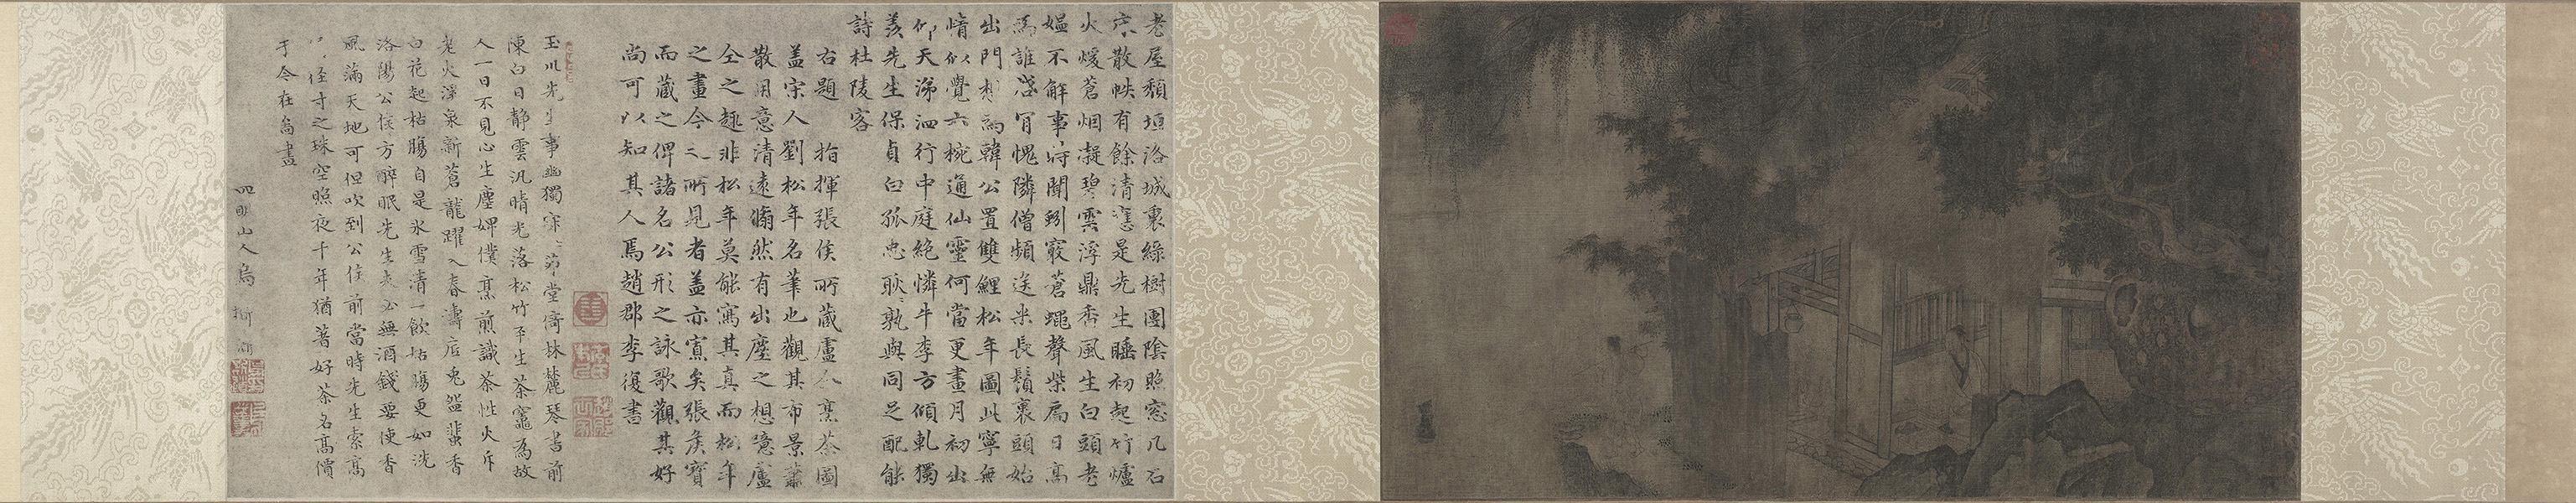 老屋頹垣洛城裏綠樹團陰照窓几石
床散帙有餘清是先生睡初起竹爐
火煖蒼烟凝碧雲浮鼎香風生白頭老
媼不解事時聞蚓竅蒼蠅聲柴扃日高
為誰啓肯愧隣僧頻送米長鬚裹頭始
出門想為韓公置雙鯉松年圖此寧無
情似覺六椀通仙靈何當更畫月初出
仰天涕泗行中庭絶憐牛李方傾軋獨
羨先生保貞白孤忠耿〻孰與同足配能
詩杜陵客
右題 指揮張侯所藏盧仝烹茶圖
盖宋人劉松年名筆也觀其布景蕭
散用意清遠翛然有出塵之想噫盧
仝之趣非松年莫能寫其真而松年
之畫今之所見者盖亦寡矣張侯寶
而藏之俾諸名公形之詠歌觀其好
尚可以知其人焉趙郡李復書
玉川先生事幽獨寂〻茆堂倚林麓琴書前
陳白日靜雲汎晴光落松竹平生茶竈為故
人一日不見心生塵婢僕烹煎識茶性火斥
老火深泉新蒼龍躍入春濤底兎盌蜚香
白花起枯腸自是氷雪清一飲枯腸更如洗
洛陽公侯方醉眠先生去必無酒錢要使香
風滿天地可但吹到公侯前當時先生索高
徑寸之珠空照夜千年猶著好茶名高價
于今在畵畫
四明山人烏